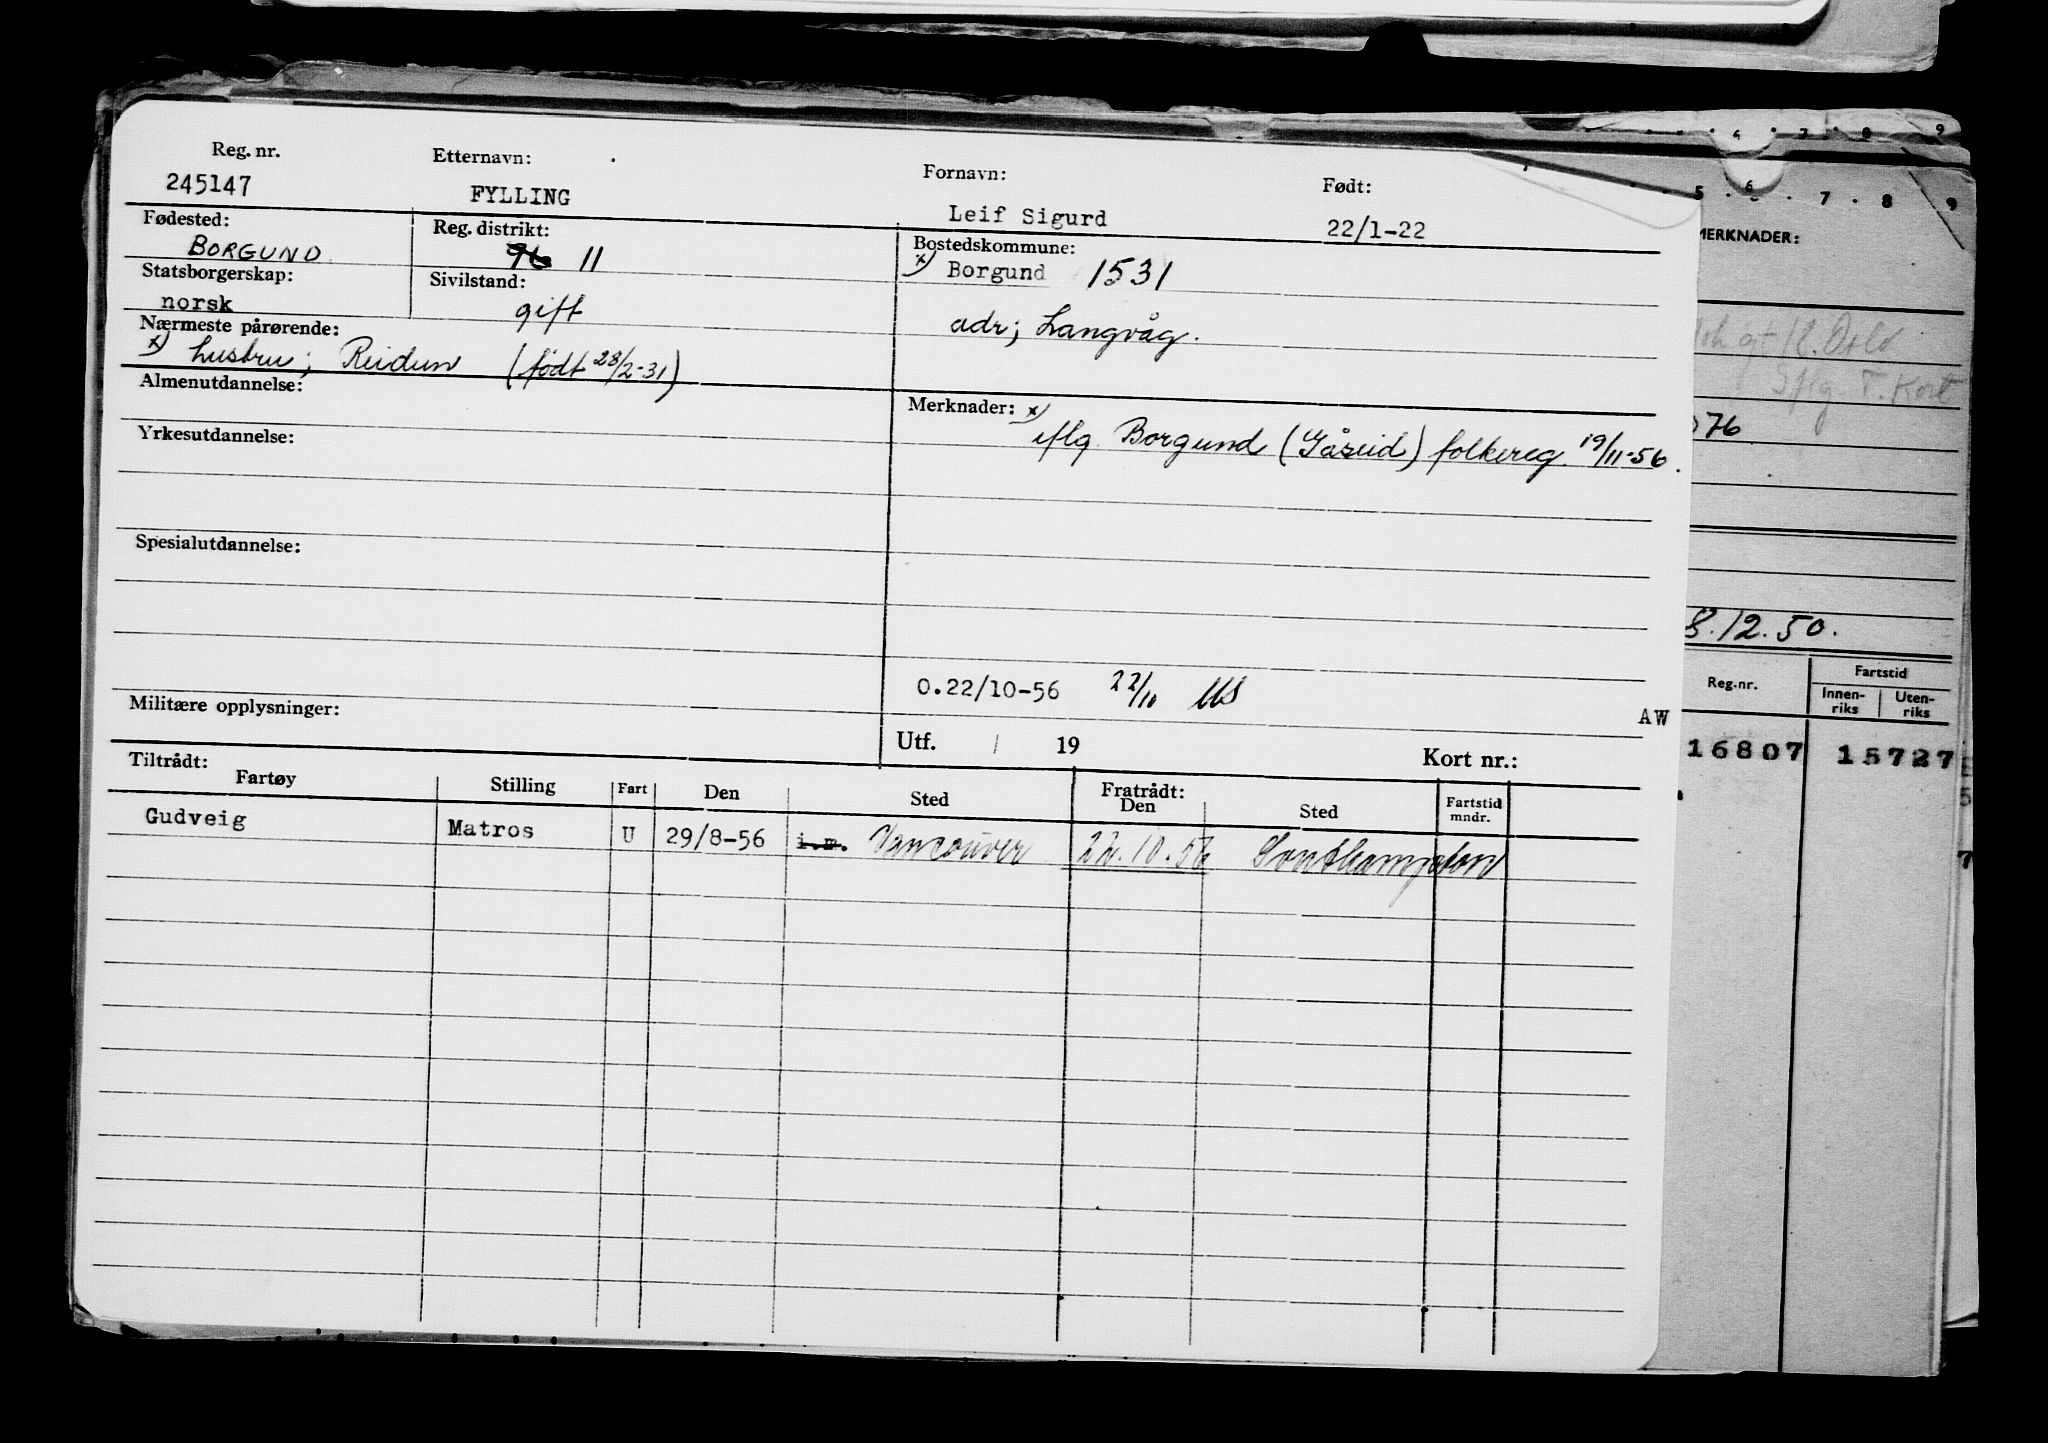 4 7 8 9
5 6 7 8 9
Reg. nr. Etternavn: Fornavn: Født:
245147 FYLLING Leif Sigurd 22/1-22
Fødested: Reg. distrikt: Bostedskommune:
BORGUND 96 11 x) Borgund 1531
Statsborgerskap: Sivilstand:
norsk gift adr; Langvåg.
Nærmeste pårørende:
x) hustru; Reidun (født 28/2-31)
Almenutdannelse: Merknader: x)
iflg. Borgund (Gåseid) folkereg. 19/11-56.
Yrkesutdannelse:
Spesialutdannelse:
O.22/10-56 22/10
AW
Militære opplysninger: Utf. / 19 Kort nr.:
Tiltrådt: Fratrådt:
Fartøy Stilling Fart Den Sted Den Sted Fartstid mndr.
Gudveig Matros U 29/8-56 i.m. Vancouver 22.10.56 Southampton
MERKNADER:
gt 18. Oslo
Iflg T. Kort
076
8.12.50.
Reg.nr. Fartstid
Innen-riks Uten-riks
16807 15727
5
7